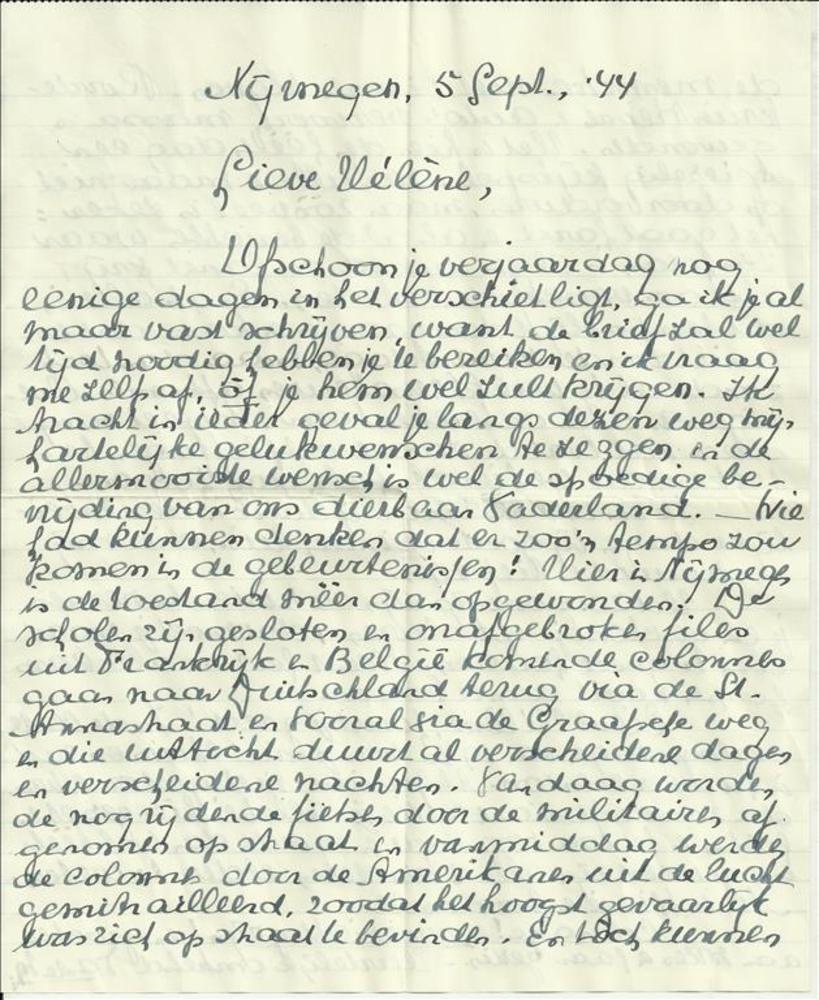 Nijmegen, 5 Sept., '44
Lieve Hélène,
Ofschoon je verjaardag nog
eenige dagen in het verschiet ligt, ga ik je al
maar vast schrijven, want de brief zal wel
tijd noodig hebben je te bereiken en ik vraag
me zelf af, óf je hem wel zult krijgen. Ik
tracht in ieder geval je langs dezen weg mijn
hartelijke gelukwenschen te zeggen en de
allermooiste wensch is wel de spoedige be-
vrijding van ons dierbaar Vaderland. — Wie
had kunnen denken dat er zoo'n tempo zou
komen in de gebeurtenissen! Hier in Nijmegen
is de toestand méér dan opgewonden. De
scholen zijn gesloten en onafgebroken files
uit Frankrijk en België komende colonnes
gaan naar Duitschland terug via de St.
Annastraat en vooral via de Graafsche weg
en die uittocht duurt al verscheidene dagen
en verscheidene nachten. Vandaag worden
de nog rijdende fietsen door de militairen af-
genomen op straat en vanmiddag werden
de colonnes door de Amerikanen uit de lucht
gemitrailleerd, zoodat het hoogst gevaarlijk
was zich op straat te bevinden. En toch kunnen